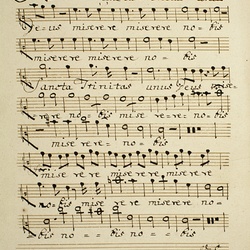 e-us miserere miserere no- bis
miserere miserere no - bis
ancta Trinitas unus Deus mise-
rere no - bis mise-re-re no-
bis mise rere no - bis
mise re re mise re re miserere
no-bis mise re re miserere no -
bis no - - bis no - bis